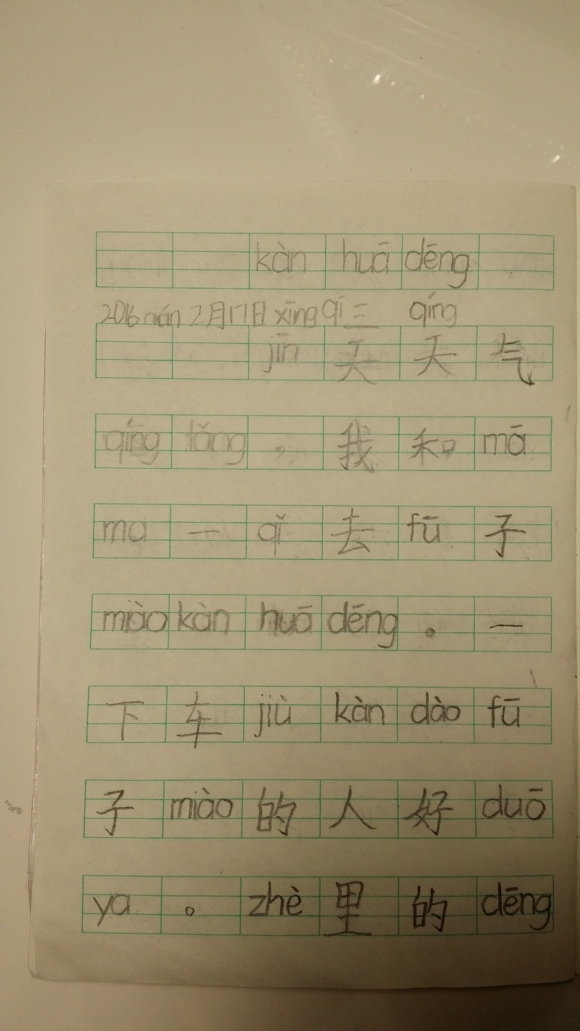 kàn huā dēng
2016nián 2月17日 xīng qī 三 qíng
jīn 天 天 气
qíng lǎng ， 我 和 mā
ma 一 qǐ 去 fū 子
miào kàn huā dēng 。 一
下 车 jiù kàn dào fū
子 miào 的 人 好 duō
ya 。 zhè 里 的 dēng